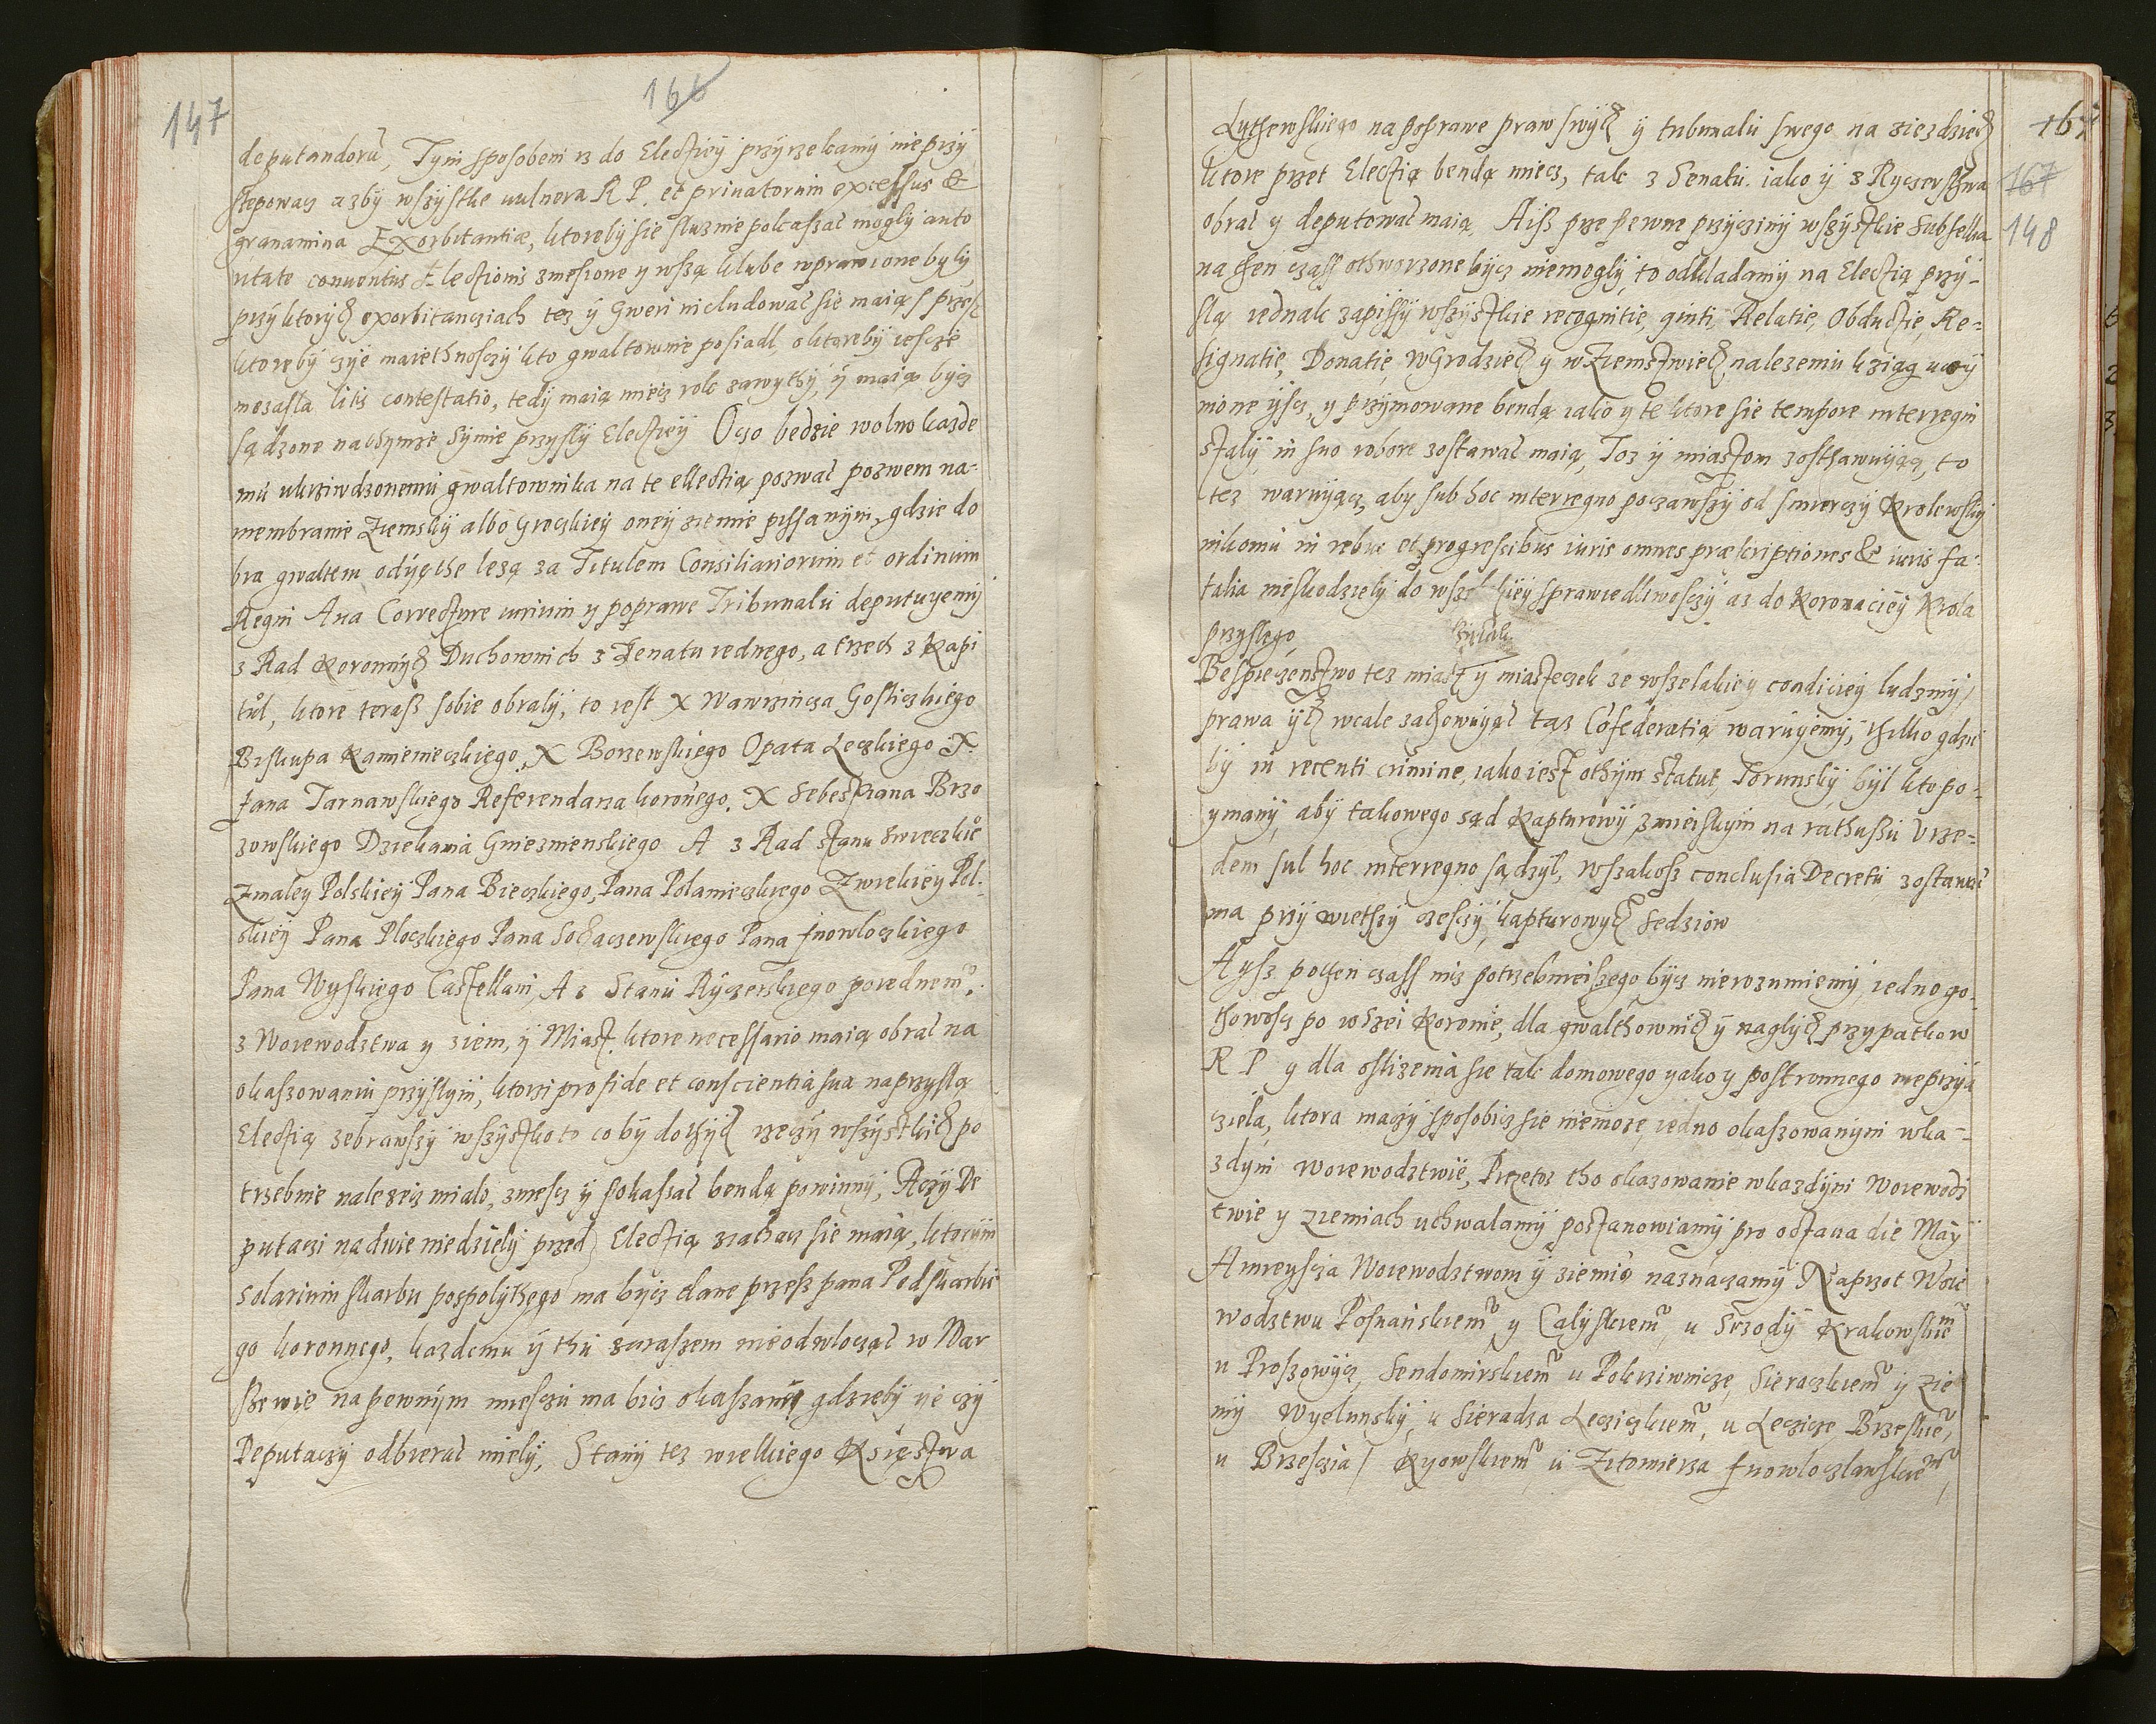 147
166
deputandorũ, Tym sposobem iz do Electiey przyrzekamy nie przy
stępowacz azby wszystke vulnera R P. et priuatorum excessus &
grauamina Exorbitantiæ, ktoreby sie słusznie pokaszać mogly auto
ritate conuentus Electionis zniesione y wszą klube wprawione byly
przy ktorych exorbitancziach tez y Gwen includowac sie maią / przesz
ktoreby czye maiethnosczy kto gwaltownie posiadl, o ktoreby iescze
niezasla litis contestatio, tedy maią miecz rok zawythy, y maią bycz
sądzone na thymze symie przyszly Electiey Oczo bedzie wolno kazde
mu ukrziwdzonemu gwaltownika na te ellectią pozwac pozwem na
membranie Ziemsky albo Groczkiey oney ziemie pissanym, gdzie do
bra gwaltem odyęthe lezą za Titulem Consiliariorum et ordinum
Regni Ana Correcture iurium y poprawe Tribunalu deputuyemy
z Rad Koronnych Duchownich z Senatu iednego, a trzech z Kapi
tul, ktore terasz sobie obraly, to iest X Wawrzincza Gosliczkiego
Biskupa Kamienieczkiego, X Borzewskiego Opata Leczkiego X.
Jana Tarnawskiego Referendarza koronego, X Sebestiana Brzo
zowskiego Dziekana Gnieznienskiego A z Rad stanu swieczkie
Zmaley Polskiey Pana Bieczkiego, Pana Polanieczkiego Zwielkiey Pol-
skiey Pana Ploczkiego Pana Sochaczewskiego Pana Jnowloczkiego
Pana Wyskiego Castellani, A z Stanu Ryczerskiego po iednemu,
z Woiewodztwa y ziem, y Miast, ktore necessario maią obrac na
okaszowaniu przyszlym, ktorzi pro fide et conscientia sua na przyszlą
Electią zebrawszy wszystko to co by do thych rzeczy wszystkich po
trzebnie nalezecz mialo, zniescz y pokaszac bendą powinny, Aczy De
putaczi na dwie niedziely przed Electią ziachacz sie maią, ktorym
solarium skarbu pospolythego ma bycz dane przesz pana Podskarbie
go koronnego, kazdemu y thu zaraszem nieodwloczącz w War
szewie na pewnym miesczu ma bicz okaszany gdzieby ye czy
Deputaczy odbierac miely, Stany tez wielkiego Księstwa
167
167
148
Lythewskiego na poprawe praw swych y tribunalu swego na ziezdziech
ktore przet Electią bendą miecz, tak z Senatu iako y z Ryczersthwa
obrac y deputowac maią, Aisz prze pewne przycziny wszystkie subsellia
na then czass othworzone bycz niemogly, to odkladamy na Electią przy-
slą iednak zapissy wszystkie recognitie, quiti, Relatie, Obductie, Re-
signatie, Donatie, w Grodziech y w Ziemstwiech nalezemu ksiąg uczy
nione yscz, y przymowane bendą iako y te ktore sie tempore interregni
staly in suo robore zostawac maią, Toz y miastom zosthawuyąą, to
tez waruyącz, aby sub hoc interregno poczawszy od smierczy Krolewsky
nikomu in rebus et progressibus iuris omnes præscriptiones & iuris fa-
talia nieskodziely do wszelkiey sprawiedliwosczy az do Koronaciey Krola
przyslego,
Bespieczenstwo tez miast y miasteczek ze wszelakiey condiciey ludzmy,
prawa ych wcale zachowuyąc taz Cõfederatią waruyemy, thilko gdzie
by in recenti crimine, iako iest othym statut Torunsky byl kto po-
ymany, aby takowego sąd Kapturowy z mieiskym na rathussu Vrze-
dem sub hoc interregno sądzyl, wszakosz conclusia Decretu zostawac
ma przy wietszy czesczy kapturowych sedziow
A ysz po then czass nicz potrzebnieiszego bycz nierozumiemy, iedno go-
thowoscz po wszei Koronie, dla gwalthownich y naglych przypatkow
R P y dla oslizenia sie tak domowego yako y postronnego nieprzyia
ziela, ktora maczy sposobicz sie niemoze, iedno okaszowanym wka-
zdym woiewodztwie, Przetoz tho okazowanie wkazdym Woiewodz
twie y ziemiach uchwalamy postanowiamy pro octaua die May
A mieyscza Woiewodztwom y ziemiõ naznaczamy Naprzot Woie
wodztwu Posnańskiemu y Calyskiemu u Srzody Krakowskiemu
u Proszowycz, Sendomirskiemu u Pokrziwnicze, Sieraczkiemu y zie
my Wyelunsky, u Sieradza Lecziczkiemu, u Leczicze, Brzeskiemu,
u Brzesczia / Kyowskiemu u Zitomierza Jnowloczlawskiemu,